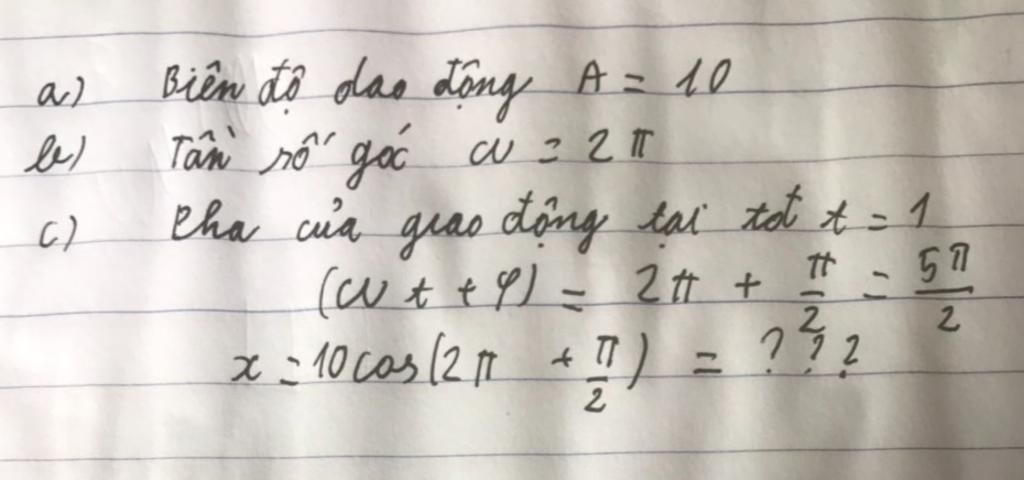 a) Biên độ dao động A = 10
b) Tần số góc ω = 2π
c) Pha của giao động tại tđ t = 1
(ωt + φ) = 2π + π/2 = 5π/2
x = 10cos(2π + π/2) = ???